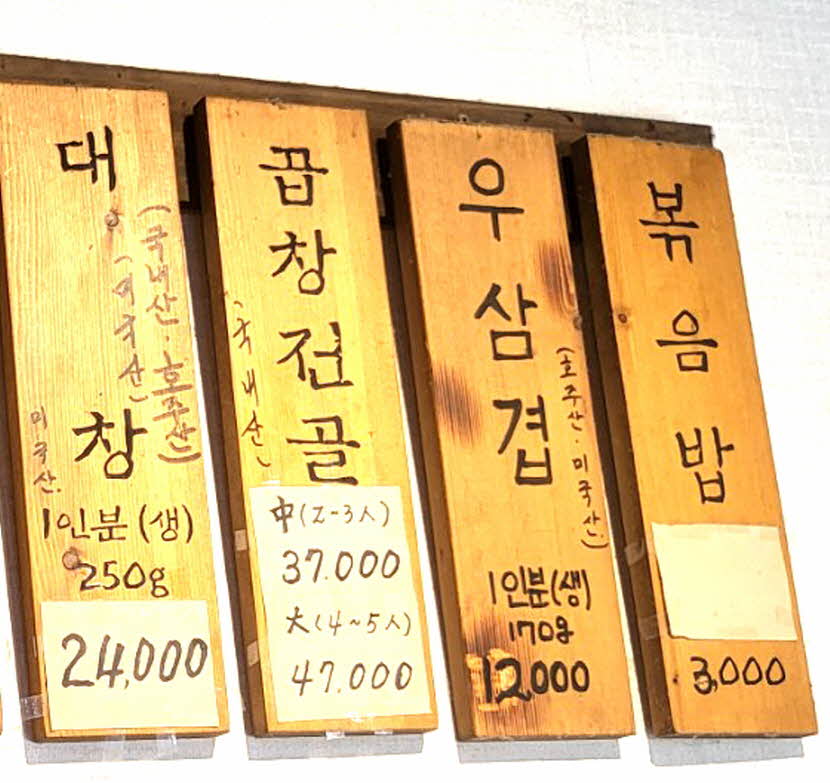 대창
(국내산·호주산)
(미국산)
미국산
1인분(생)
250g
24,000
곱창전골
(국내산)
中(2-3人)
37.000
大(4~5人)
47.000
우삼겹
(호주산·미국산)
1인분(생)
170g
12,000
볶음밥
3,000